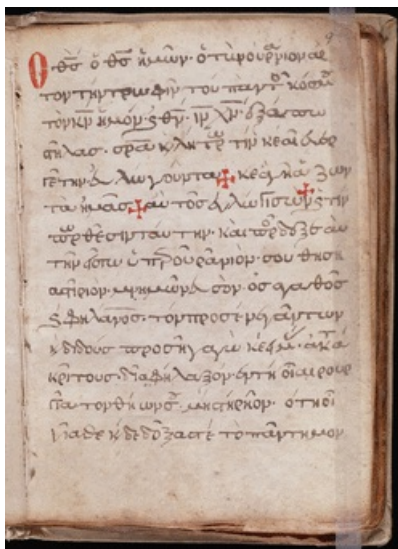 Ο θς ὁ θς ἡμων· ὁ τὸν οὐρανιον αρ
τον την τρωφὴν του παντος κόσμ
τον κν ἡμόν ϗ θν· ιν χν· εξαπο
στηλας· σρα κ λητρ την κε εβερ
γέτην ευλωγουντα ✠ κε ἁγηάζων
τα ἡμας ✠ αυτὸς ευλωγισων ϗ την
προθεσιν ταυτην· και προδεξε αυ
την εν το ὑπρουρανιον σου θησι
αστιριον· μνημωνευσον· ὁς αγαθὸς
ϗ φηλανος· τον προσενεγκαντων
κ διδους προσηγαγω κε ἡμας ακατα
κρίτους· διαφηλαξον· εν τη οιερουρ
για τον θηων σ μηστηριον· ὁτη οἱ
γιασθε κ δεδοξαστε το παντημον